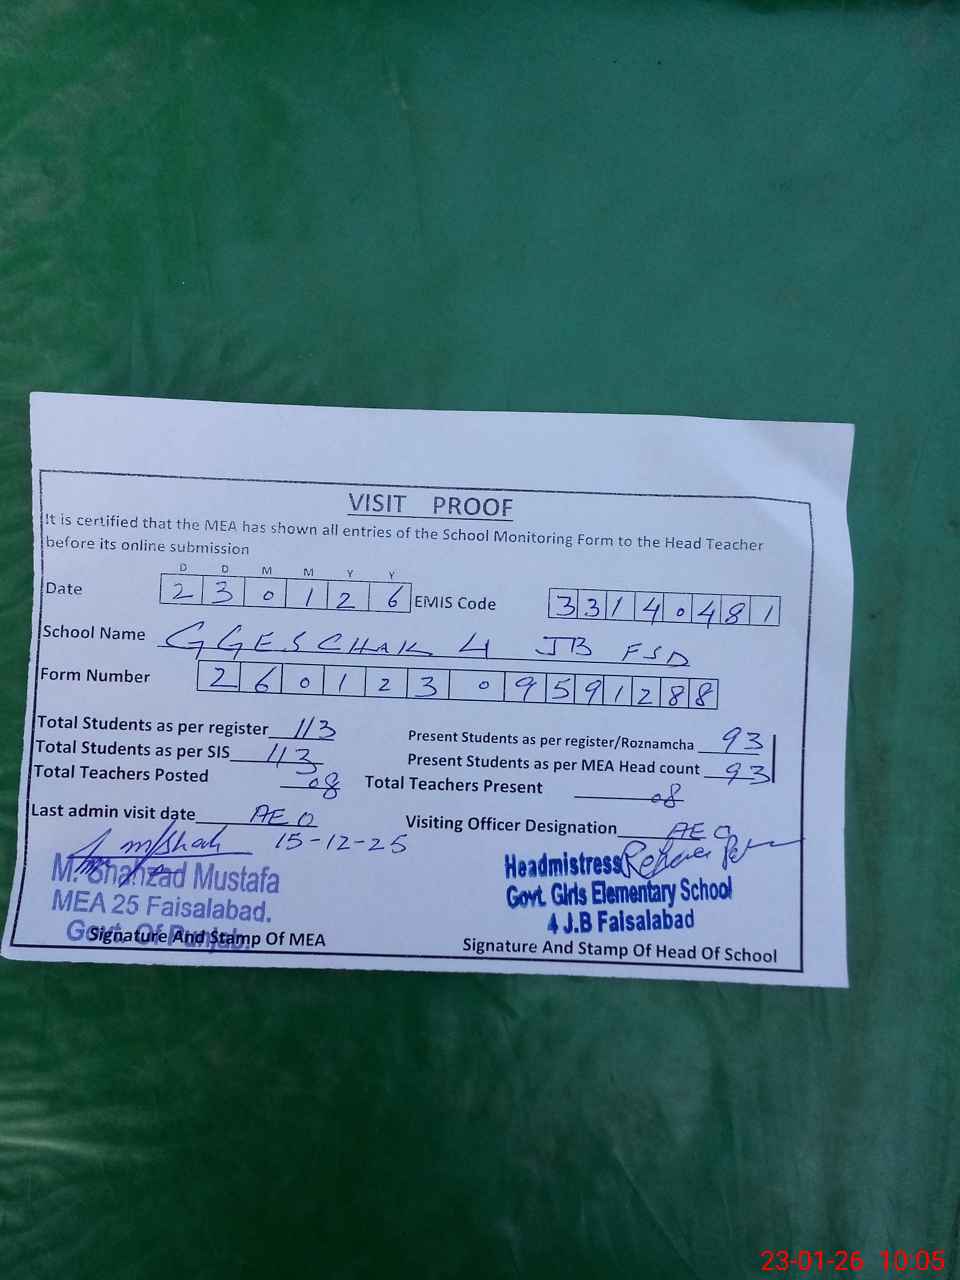 VISIT PROOF
It is certified that the MEA has shown all entries of the School Monitoring Form to the Head Teacher
before its online submission
D D M M Y Y
Date 2 3 0 1 2 6 EMIS Code 3 3 1 4 0 4 8 1
School Name GGES CHAK 4 JB FSD
Form Number 2 6 0 1 2 3 0 9 5 9 1 2 8 8
Total Students as per register 113 Present Students as per register/Roznamcha 93
Total Students as per SIS 113 Present Students as per MEA Head count 93
Total Teachers Posted 08 Total Teachers Present 08
Last admin visit date AEO Visiting Officer Designation AEO
15-12-25
M. Shahzad Mustafa
MEA 25 Faisalabad.
Govt. Of Punjab.
Signature And Stamp Of MEA
Headmistress
Govt. Girls Elementary School
4 J.B Faisalabad
Signature And Stamp Of Head Of School
23-01-26 10:05